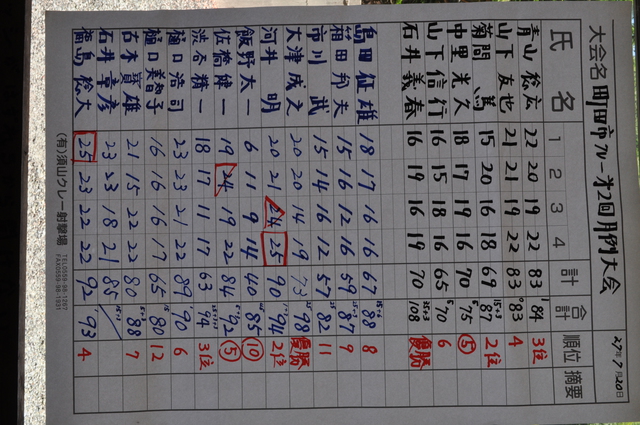 大会名 町田市グループ 第2回月例大会
27年7月20日
氏名 1 2 3 4 計 合計 順位 摘要
青山 裕広 22 20 19 22 83 1 84 3位
山下 友也 21 21 19 22 83 0 83 4
菊間 篤 15 20 16 18 69 15+3 87 2位
中里 光久 18 17 19 16 70 5 75 ⑤
山下 信行 16 15 18 16 65 5 70 6
石井 義春 16 19 16 19 70 35+3 108 優勝
島田 征雄 18 17 16 16 67 88 8
箱田 邦夫 15 16 12 16 59 87 9
市川 武 15 14 16 12 57 25 82 11
大津 成之 20 20 14 19 73 98 優勝
河井 明 20 21 24 25 90 94 2位
飯野 太一 6 11 9 14 40 85 ⑩
佐橋 健一 19 24 19 22 84 92 ⑤
渋谷 精一 18 17 11 17 63 94 3位
樋口 浩司 23 23 21 22 89 90 6
樋口 美智子 16 16 16 17 65 15 80 12
古木 賢雄 21 15 22 22 80 88 7
石井 章彦 23 23 18 21 85
福島 裕夫 25 23 22 22 92 93 4
(有)須山クレー射撃場
TEL0559-98-1207
FAX0559-98-1931